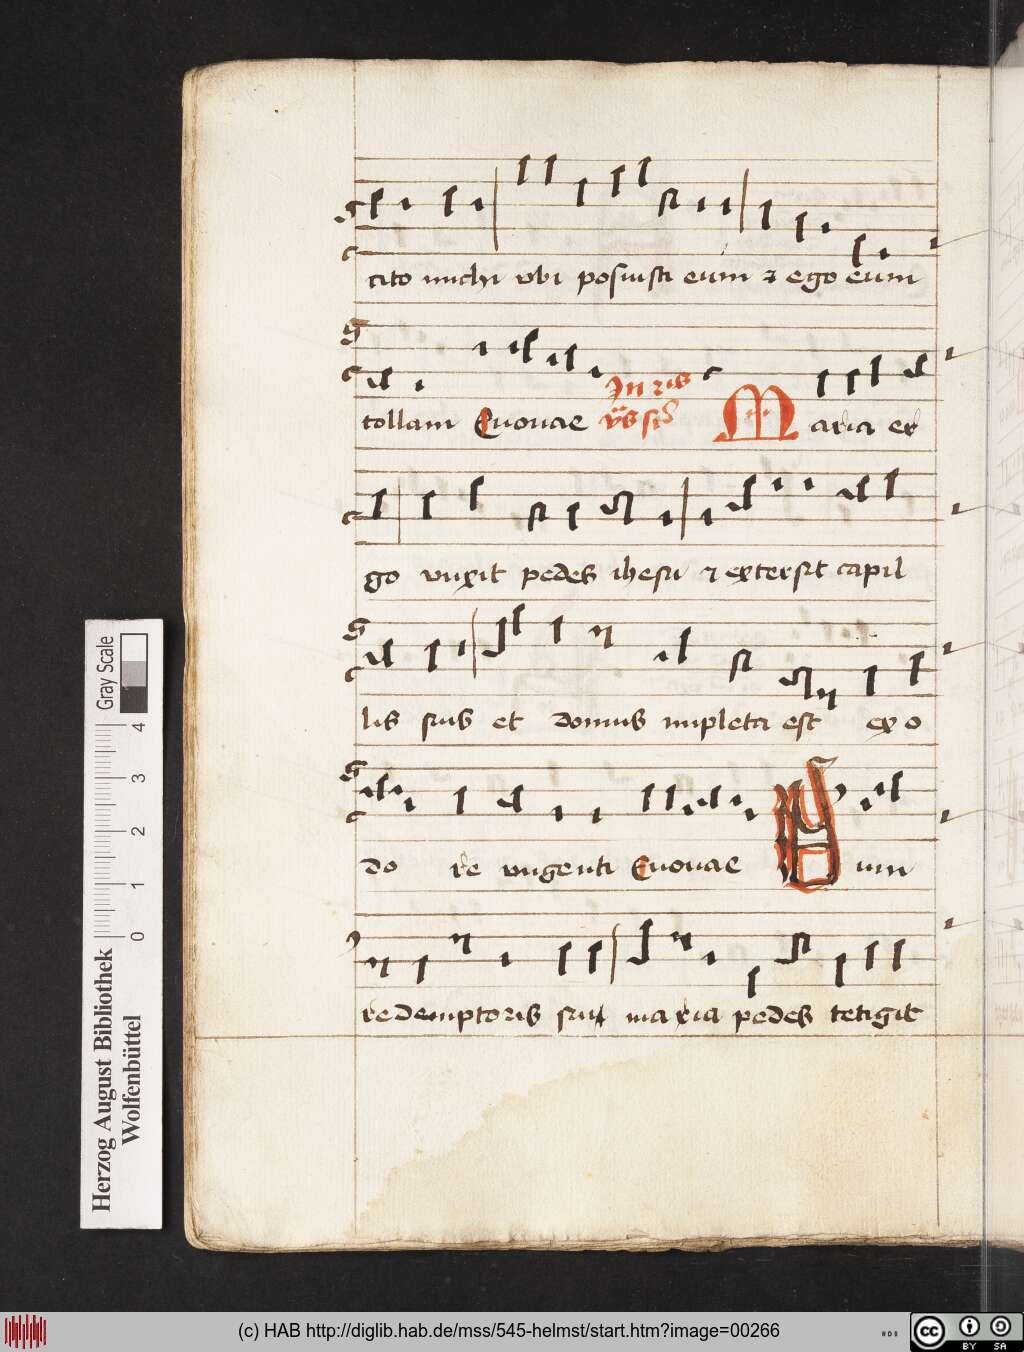 cito michi vbi posuisti eum ⁊ ego eum
tollam Euouae In 2is
v̈s Maria er
go vnxit pedes ihesu ⁊ extersit capil
lis suis et domus impleta est ex o
do re vngenti Euouae um
redemptoris sui maria pedes tetigit
Gray Scale
4
3
2
1
0
Herzog August Bibliothek
Wolfenbüttel
(c) HAB http://diglib.hab.de/mss/545-helmst/start.htm?image=00266
cc BY SA